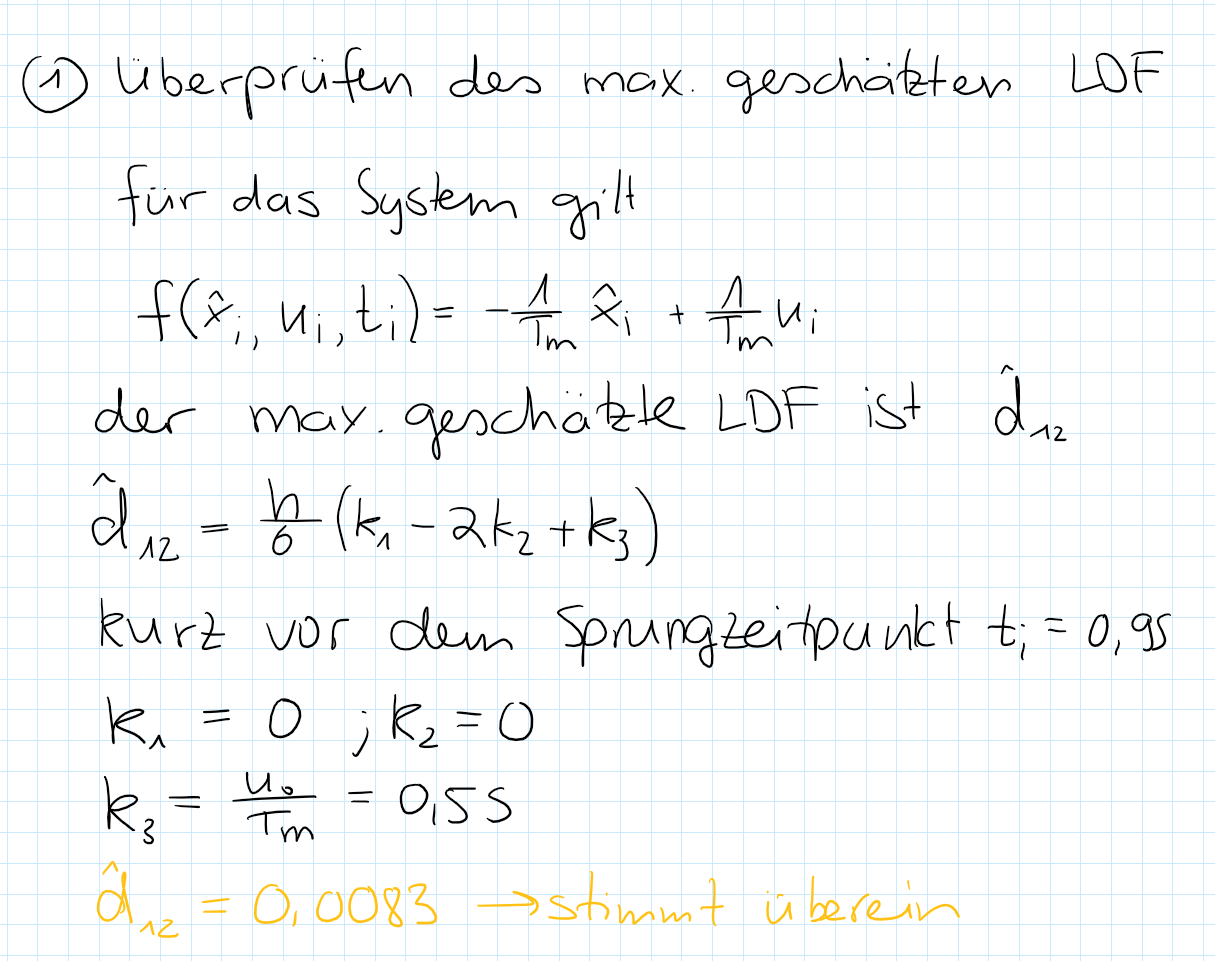 ① Überprüfen des max. geschätzten LDF
für das System gilt
f(x̂ᵢ, uᵢ, tᵢ) = -1/Tm x̂ᵢ + 1/Tm uᵢ
der max. geschätzte LDF ist d̂₁₂
d̂₁₂ = h/6 (k₁ - 2k₂ + k₃)
kurz vor dem Sprungzeitpunkt tᵢ = 0,9s
k₁ = 0 ; k₂ = 0
k₃ = u₀/Tm = 0,5s
d̂₁₂ = 0,0083 → stimmt überein